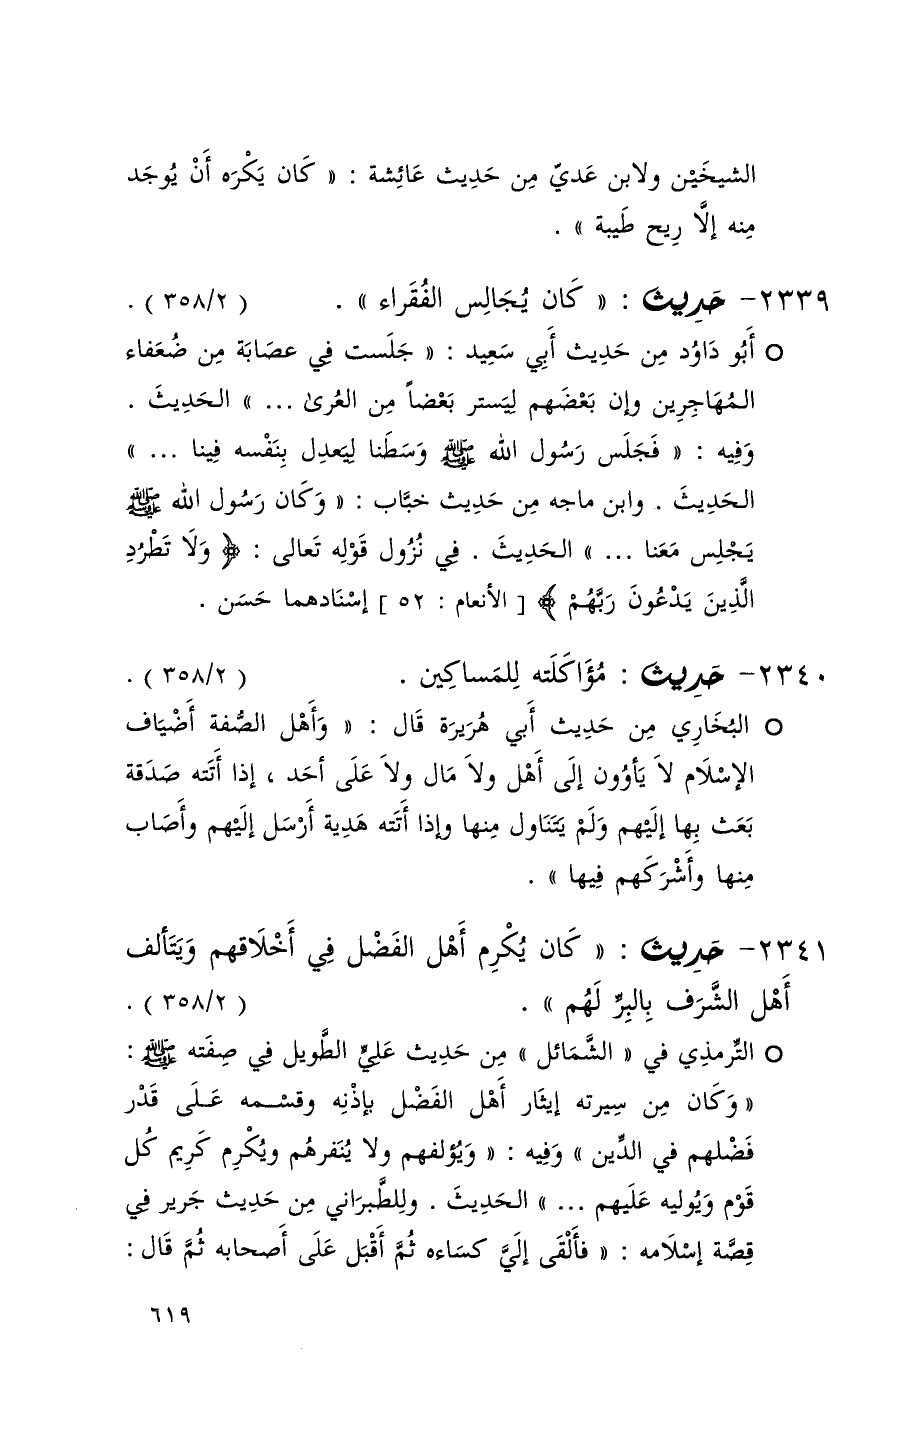 الشيخَيْن ولابن عَديّ مِن حَدِيث عَائِشة : « كَان يَكْرَه أَنْ يُوجَد
مِنه إلَّا رِيح طَيبة » .
٢٣٣٩- حَدِيث : « كَان يُجَالِس الفُقَراء » . ( ٣٥٨/٢ ) .
○ أَبُو دَاوُد مِن حَدِيث أَبِي سَعِيد : « جَلَست فِي عصَابَة مِن ضُعَفاء
المُهَاجِرِين وإن بَعْضَهم لِيَستر بَعْضاً مِن العُرىٰ ... » الحَدِيثَ .
وَفِيه : « فَجَلَس رَسُول الله ﷺ وَسَطَنا لِيَعدِل بِنَفْسه فِينا ... »
الحَدِيثَ . وابن ماجه مِن حَدِيث خبَّاب : « وَكَان رَسُول الله ﷺ
يَجْلِس مَعَنا ... » الحَدِيثَ . فِي نُزُول قَوْلِه تَعالى : ﴿ وَلَا تَطْرُدِ
الَّذِينَ يَدْعُونَ رَبَّهُمْ ﴾ [ الأنعام : ٥٢ ] إسْنَادهما حَسَن .
٢٣٤٠- حَدِيث : مُؤَاكَلَته لِلمَساكِين . ( ٣٥٨/٢ ) .
○ البُخَارِي مِن حَدِيث أَبي هُرَيرَة قَال : « وَأَهْل الصُّفة أَضْيَاف
الإسْلَام لاَ يَأوُون إلَى أَهْل ولاَ مَال ولاَ عَلَى أحَد ، إذا أَتَته صَدَقة
بَعَث بِها إلَيْهم وَلَمْ يَتَنَاول مِنها وإذا أَتَته هَدِية أَرْسَل إلَيْهم وأَصَاب
مِنها وأَشْرَكَهم فِيها » .
٢٣٤١- حَدِيث : « كَان يُكْرِم أَهْل الفَضْل فِي أَخْلَاقهم وَيَتَألف
أَهْل الشَّرَف بِالبِرِّ لَهُم » . ( ٣٥٨/٢ ) .
○ التِّرمذِي في « الشَّمَائل » مِن حَدِيث عَلِيٍّ الطَّويل فِي صِفَته ﷺ :
« وَكَان مِن سِيرته إيثَار أَهْل الفَضْل بإذْنِه وقسْـمه عَـلَى قَدْر
فَضْلهم في الدِّين » وَفِيه : « وَيُؤلفهم ولا يُنَفرهُم ويُكْرِم كَرِيم كُل
قَوْم وَيُوليه عَلَيهم ... » الحَدِيثَ . ولِلطَّبرَاني مِن حَدِيث جَرير فِي
قِصَّة إسْلَامه : « فأَلْقَى إلَيَّ كسَاءه ثُمَّ أَقْبَل عَلَى أَصحابه ثُمَّ قَال :
٦١٩